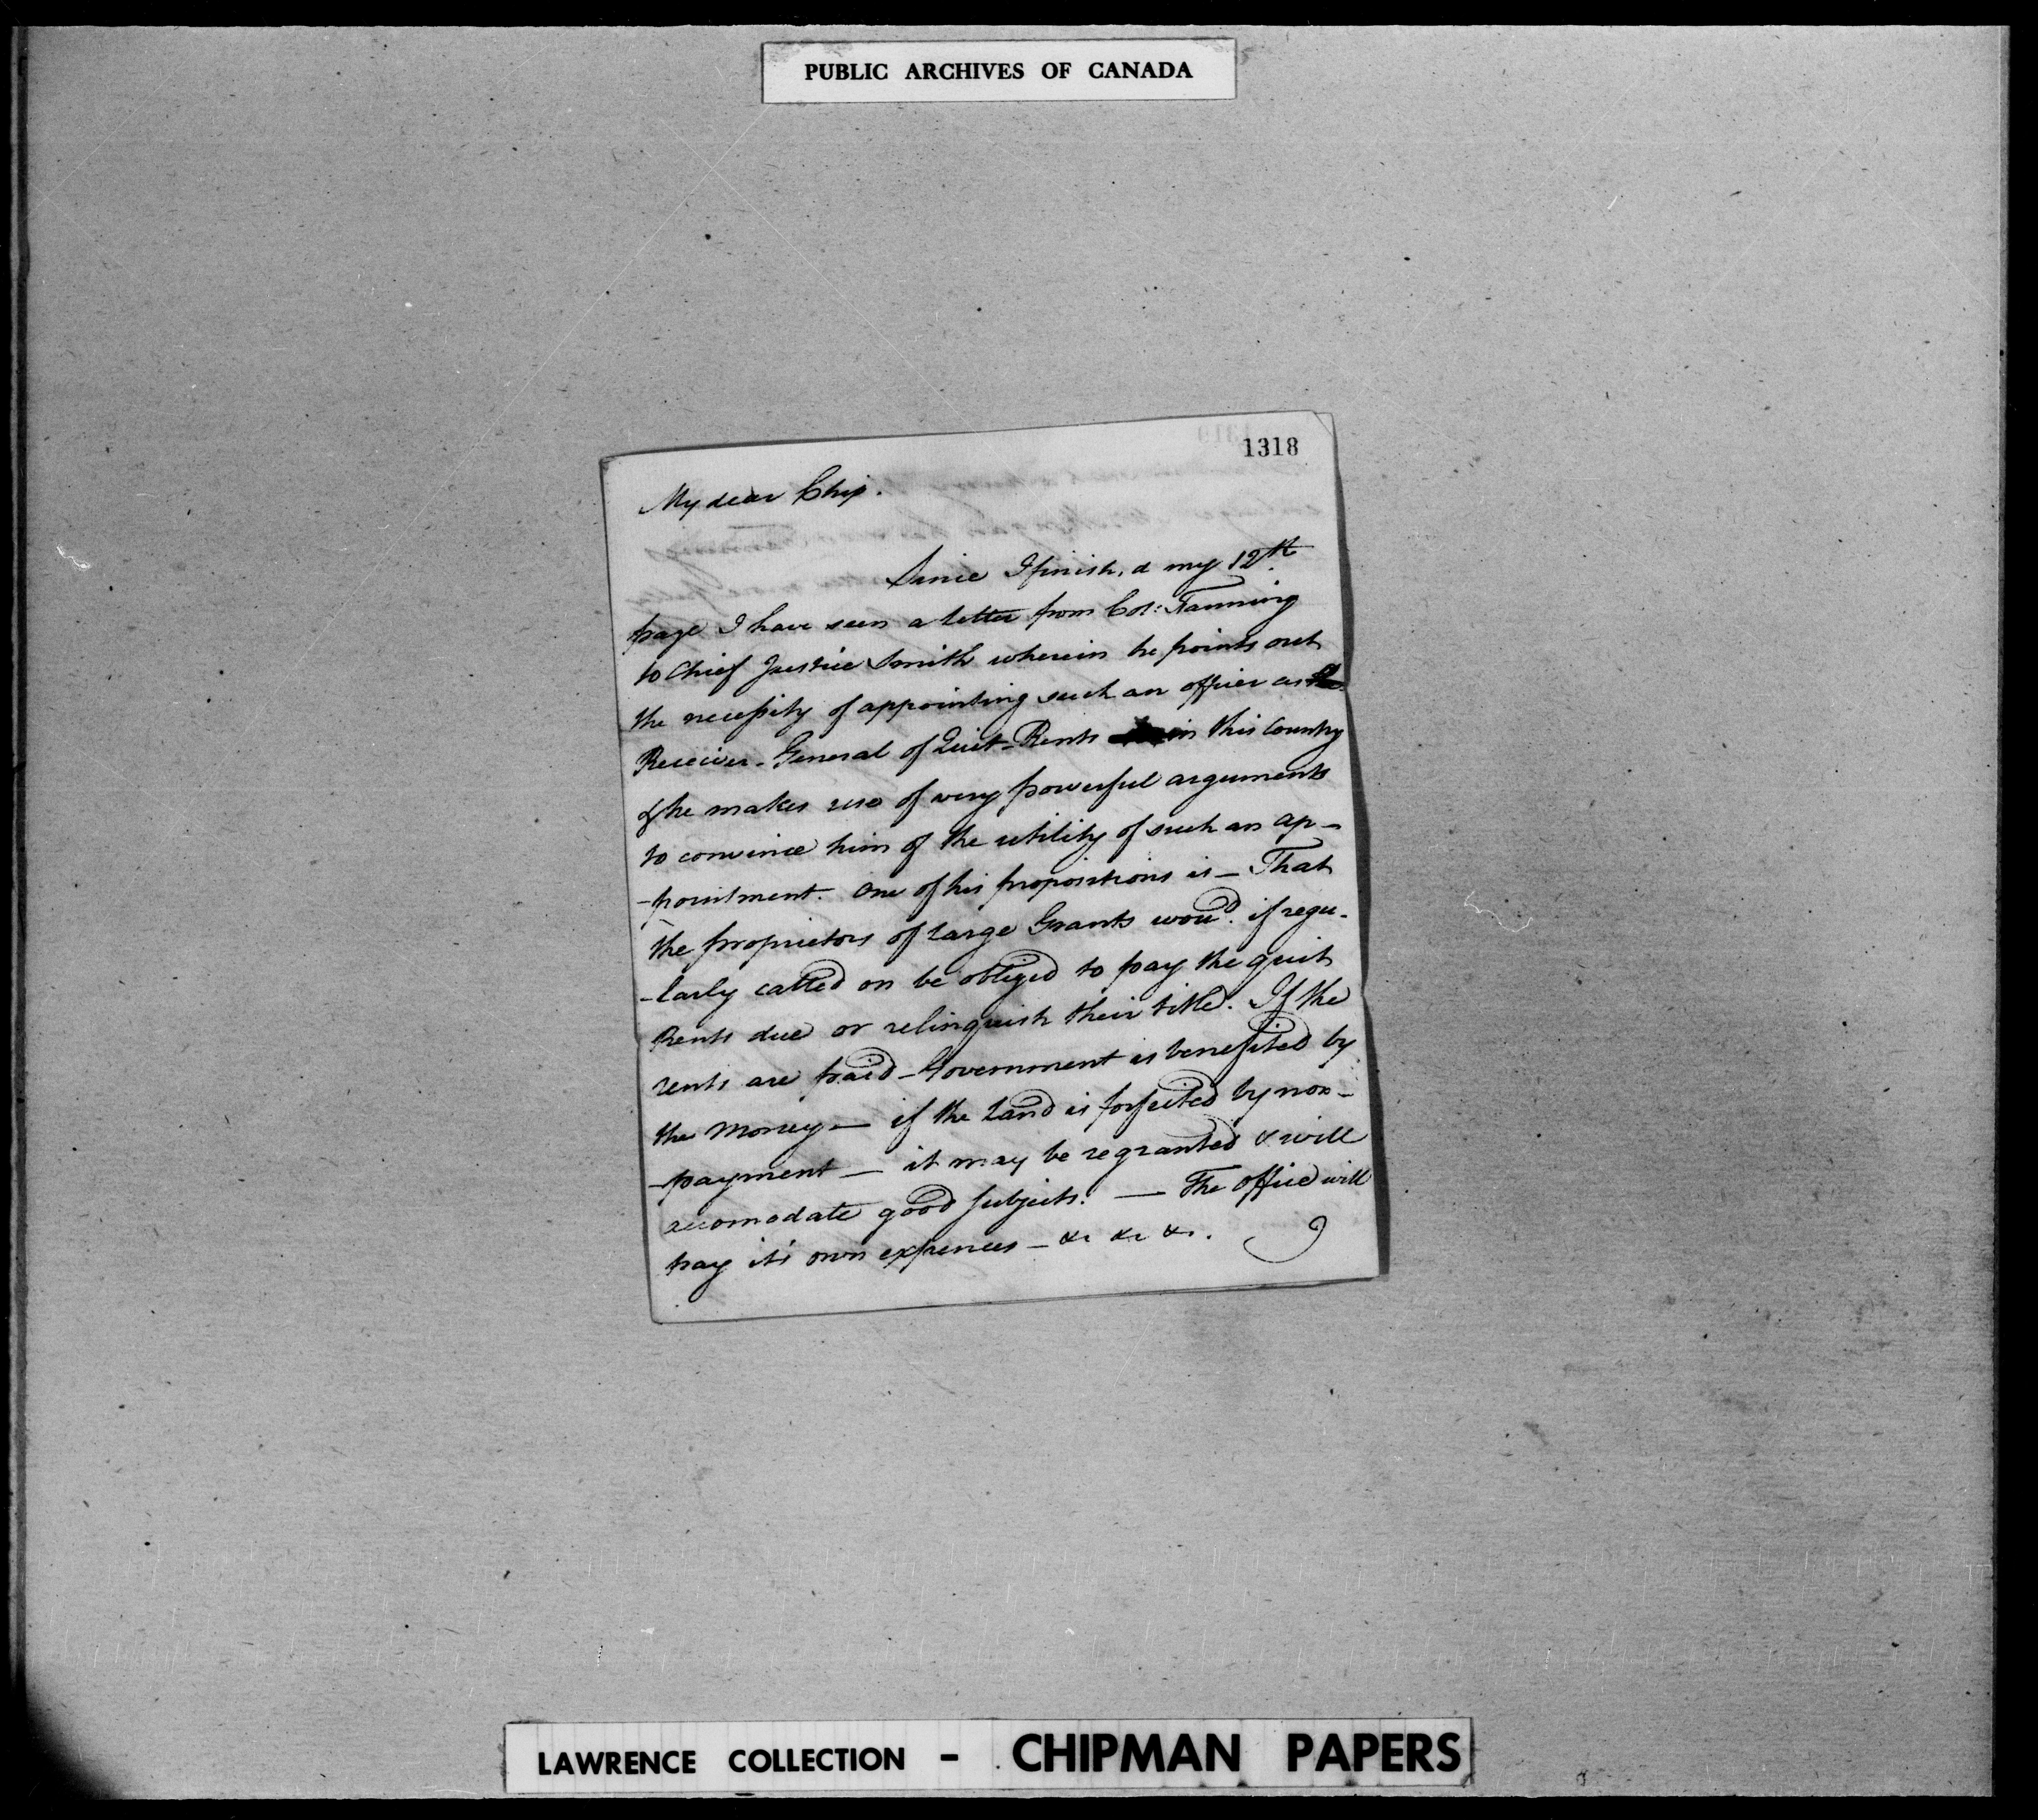 PUBLIC ARCHIVES OF CANADA
1318
My dear Chip.
Since I finish,d my 12th.
page I have seen a letter from Col: Fanning
to Chief Justice Smith wherein he points out
the necessity of appointing such an officer as
Receiver-General of Quit-Rents in this Country
& he makes use of very powerful arguments
to convince him of the utility of such an ap-
-pointment. One of his propositions is - That
the proprietors of large Grants wou'd. if regu-
-larly called on be obliged to pay the quit
Rents due or relinquish their title. If the
rents are paid - Government is benefited by
the Money - if the Land is forfeited by non-
-payment - it may be regranted & will
accomodate good subjects. - The office will
pay it's own expences - &c &c &c.
I
LAWRENCE COLLECTION - CHIPMAN PAPERS